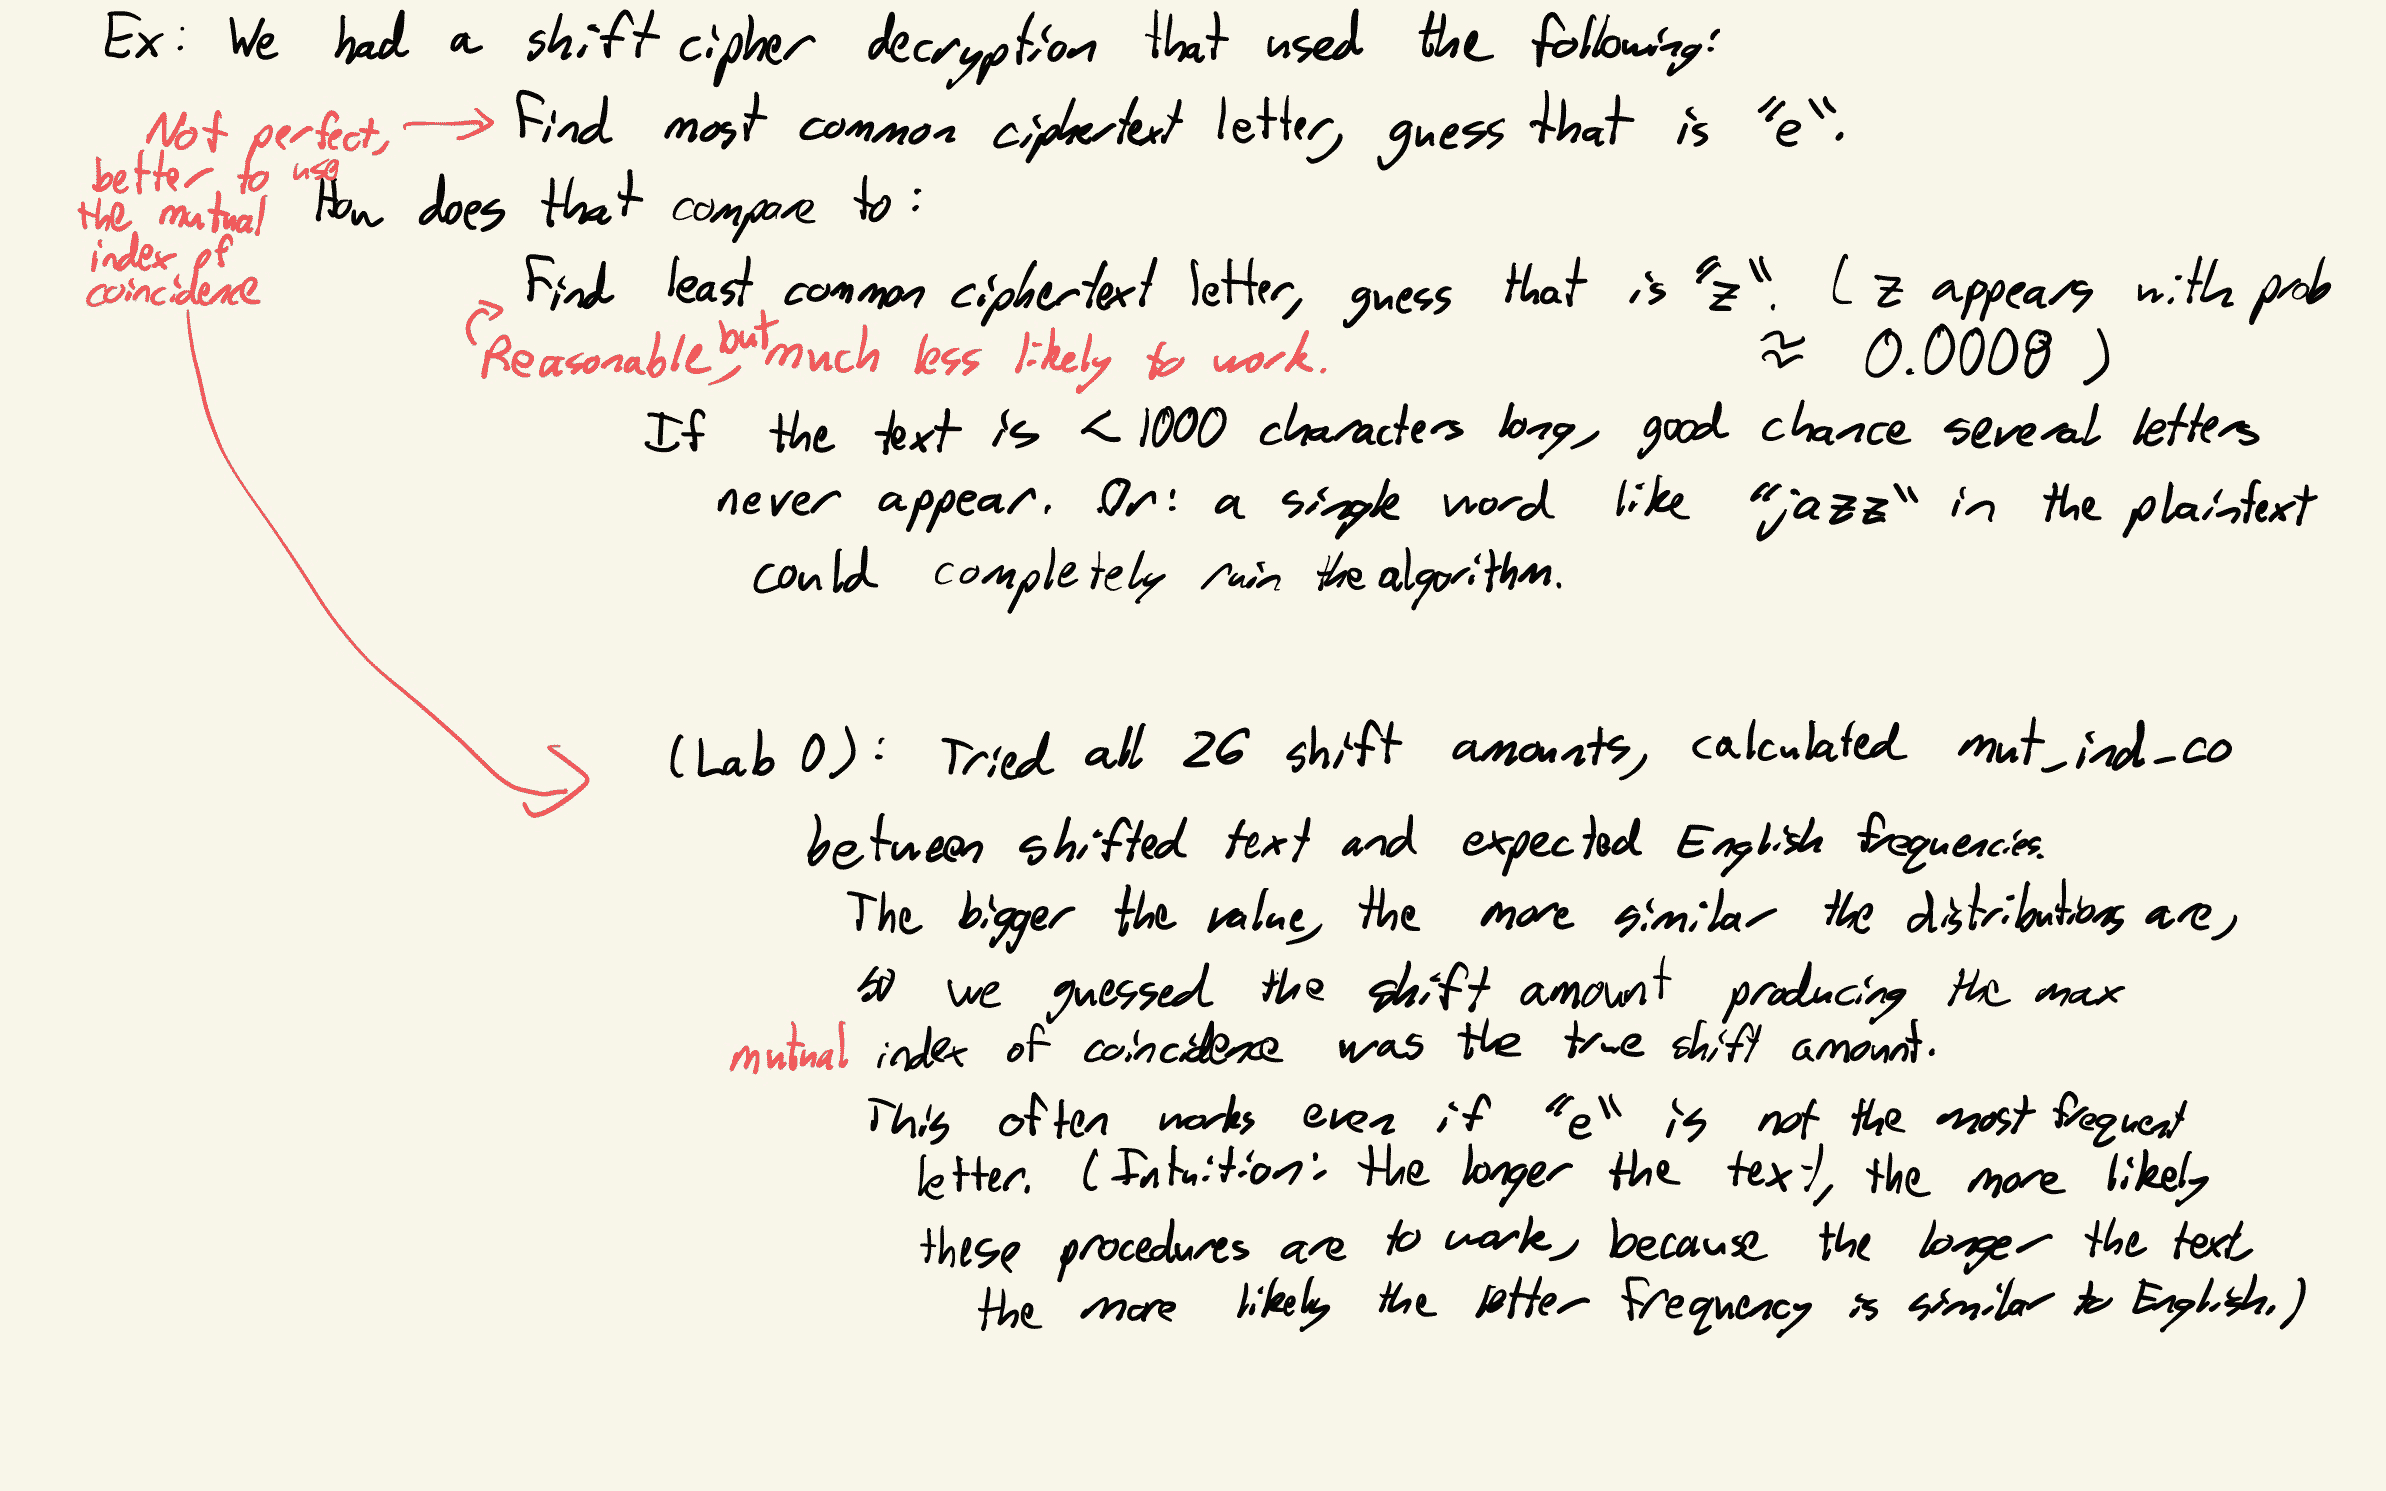 Ex: We had a shift cipher decryption that used the following:
Not perfect,
better to use
the mutual
index of
coincidence
Find most common ciphertext letter, guess that is "e".
How does that compare to:
Find least common ciphertext letter, guess that is "z". (z appears with prob
≈ 0.0008)
Reasonable, but much less likely to work.
If the text is < 1000 characters long, good chance several letters
never appear. Or: a single word like "jazz" in the plaintext
could completely ruin the algorithm.
(Lab 0): Tried all 26 shift amounts, calculated mut_ind_co
between shifted text and expected English frequencies.
The bigger the value, the more similar the distributions are,
so we guessed the shift amount producing the max
mutual index of coincidence was the true shift amount.
This often works even if "e" is not the most frequent
letter. (Intuition: the longer the text, the more likely
these procedures are to work, because the longer the text
the more likely the letter frequency is similar to English.)